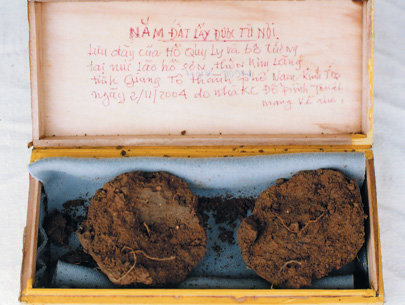 NẮM ĐẤT LẤY ĐƯỢC TỪ NƠI
Lưu đày của Hồ Quý Ly và bố tướng
tại núi Lão hổ sơn, thôn
tỉnh Giang Tô thành phố Nam Kinh
ngày 2/11/2004 do nhà KC Đỗ Đình
mang về cho.